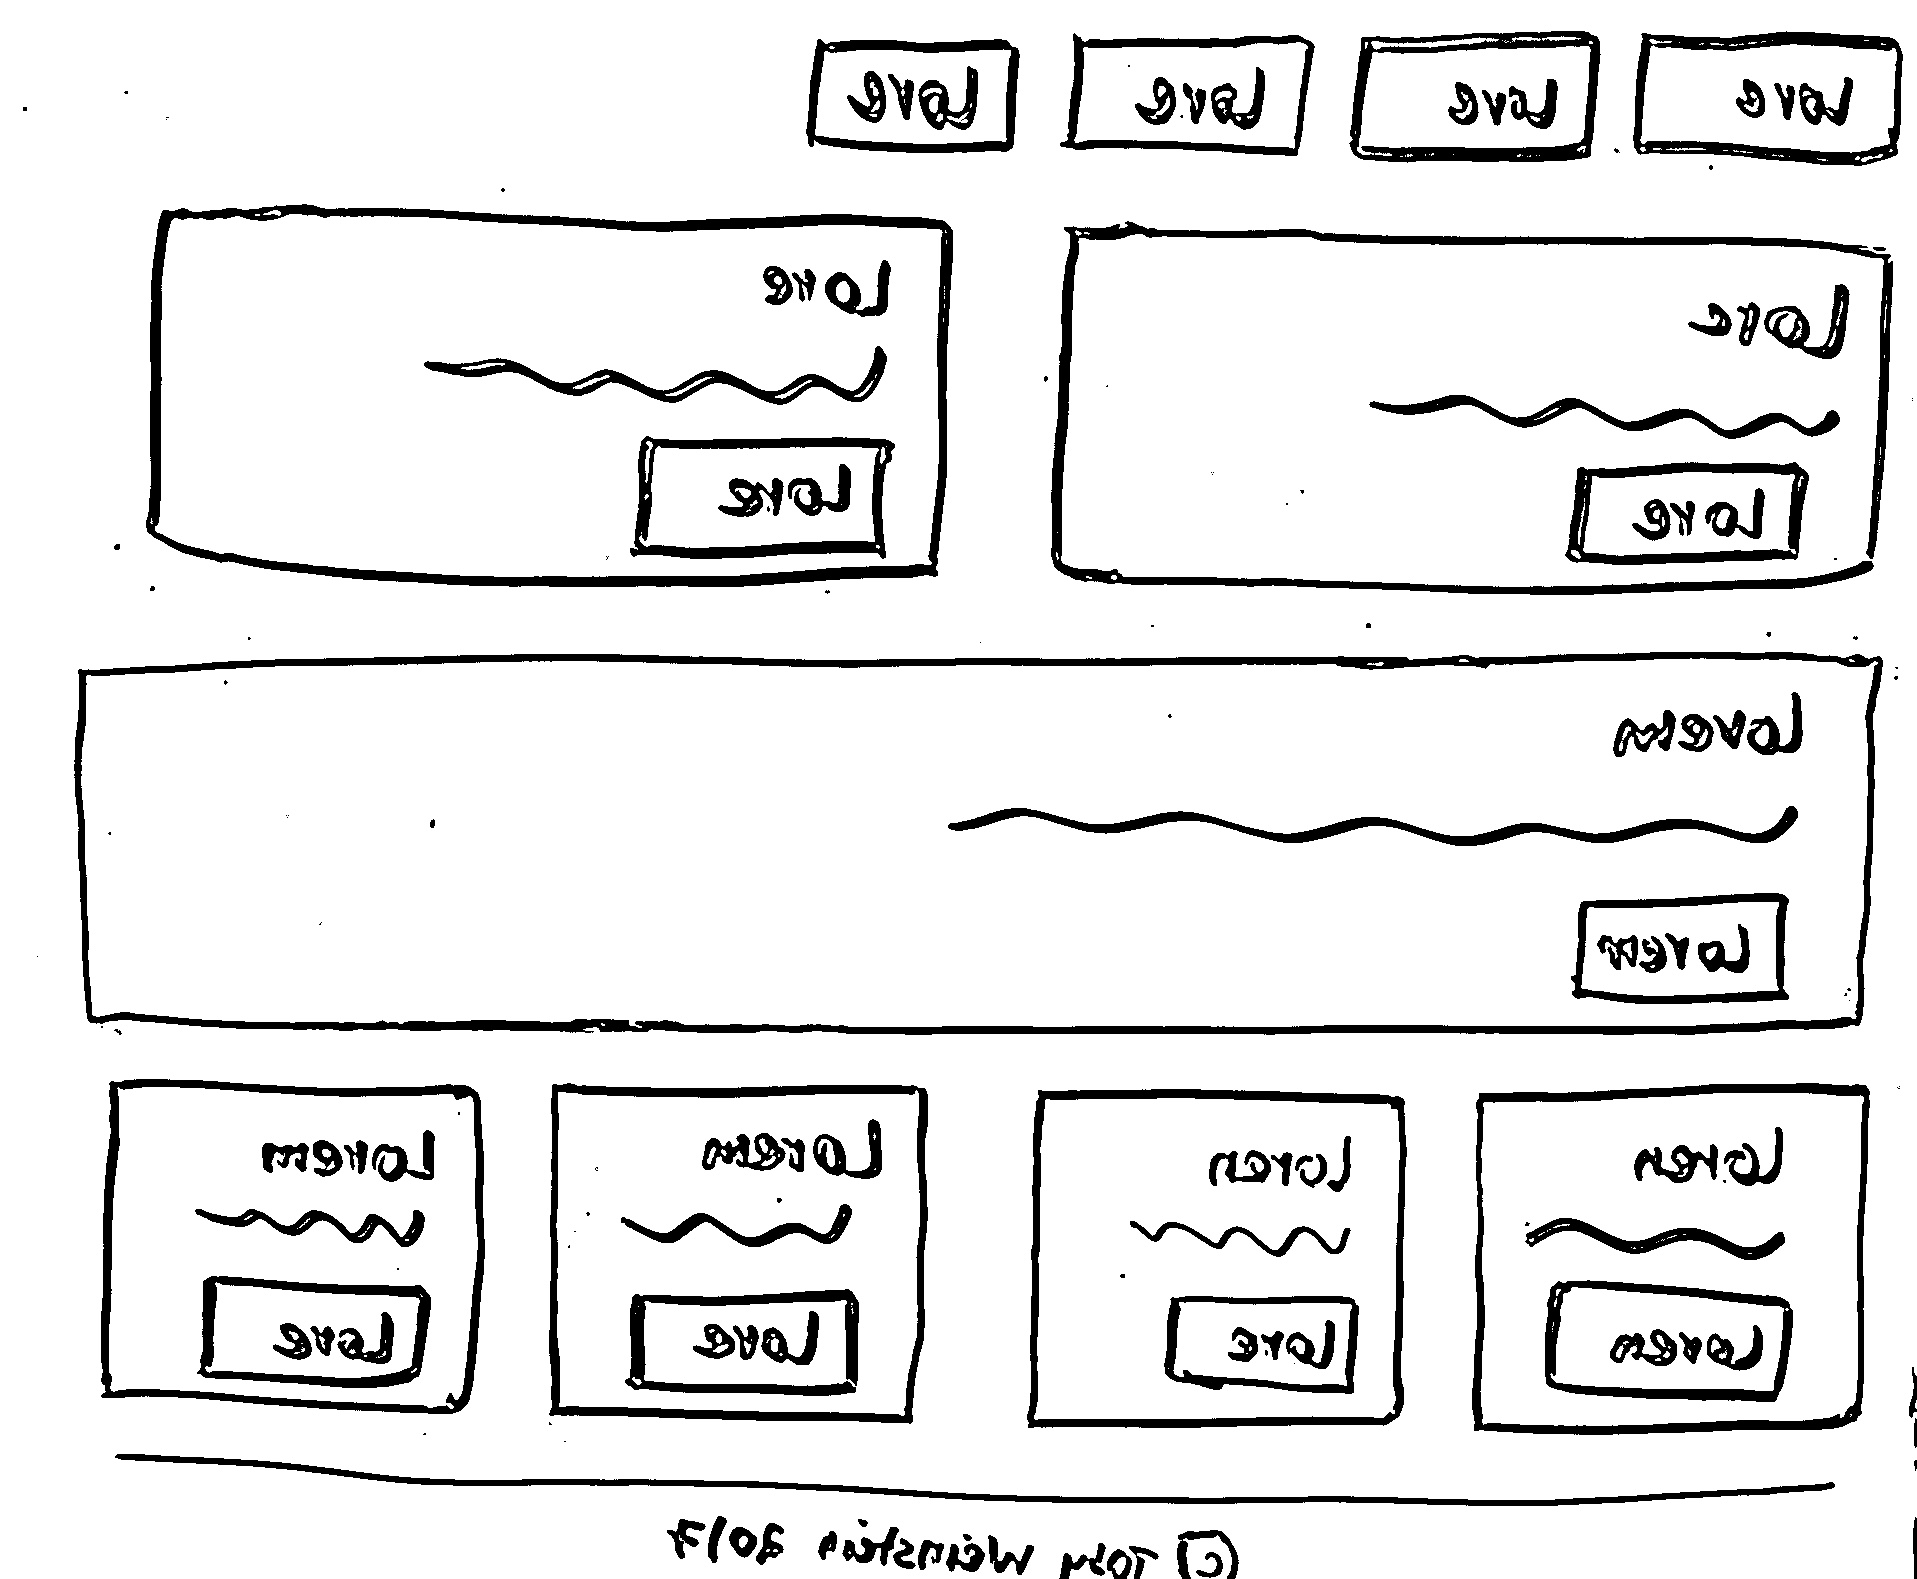 Lore Lore Lore Lore
Lore
Lore
Lore
Lore
Lorem
Lorem
Loren
Lorem
Loren
Lore
Lorem
Lore
Lorem
Lore
© Weinstein 2017